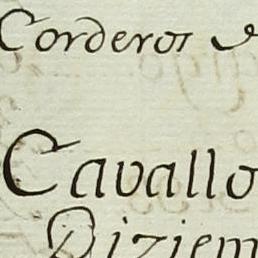 Corderos
Cavallo
Diziem